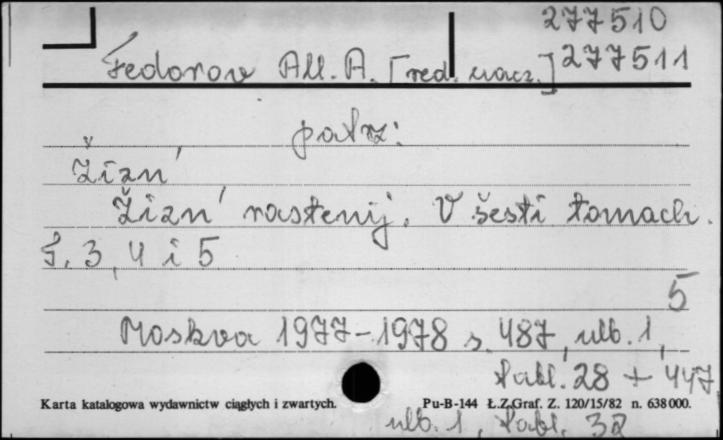 277510
Fedorov All. A. [red. nacz.] 277511
patrz:
Žizn'
Žizn' rastenij. V šesti tomach.
T. 3, 4 i 5
5
Moskva 1977-1978 s. 487, nlb. 1,
tabl. 28 + 447,
Karta katalogowa wydawnictw ciągłych i zwartych. Pu-B-144 Ł.Z.Graf. Z. 120/15/82 n. 638000.
nlb. 1, tabl. 32